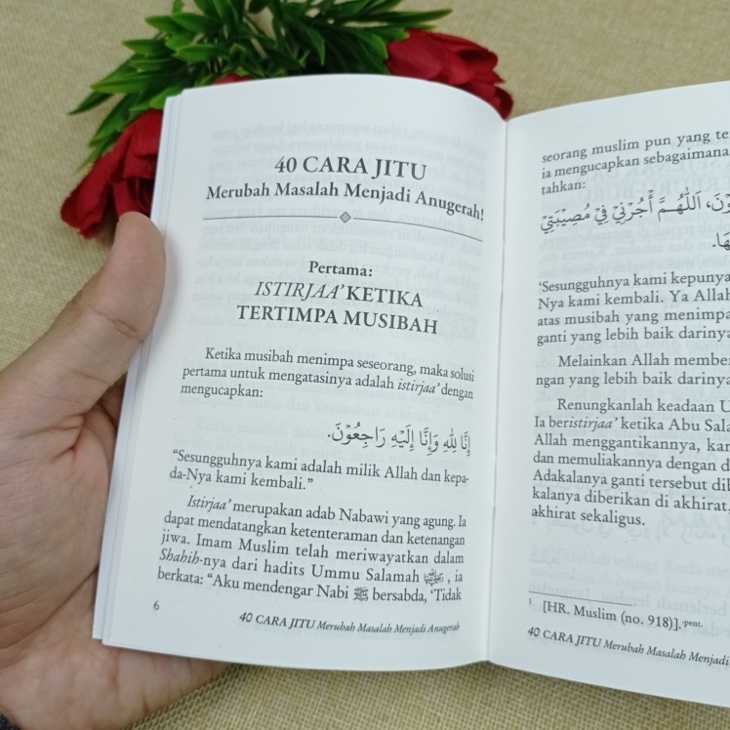 40 CARA JITU
Merubah Masalah Menjadi Anugerah!
Pertama:
ISTIRJAA' KETIKA
TERTIMPA MUSIBAH
Ketika musibah menimpa seseorang, maka solusi
pertama untuk mengatasinya adalah istirjaa' dengan
mengucapkan:
إِنَّا لِلّٰهِ وَإِنَّا إِلَيْهِ رَاجِعُوْنَ.
“Sesungguhnya kami adalah milik Allah dan kepa-
da-Nya kami kembali.”
Istirjaa' merupakan adab Nabawi yang agung. Ia
dapat mendatangkan ketenteraman dan ketenangan
jiwa. Imam Muslim telah meriwayatkan dalam
Shahih-nya dari hadits Ummu Salamah, ia
berkata: “Aku mendengar Nabi ﷺ bersabda, ‘Tidak
6
40 CARA JITU Merubah Masalah Menjadi Anugerah
seorang muslim pun yang
ia mengucapkan sebagaimana
tahkan:
اَللّٰهُمَّ أْجُرْنِيْ فِيْ مُصِيْبَتِيْ
‘Sesungguhnya kami kepunya
Nya kami kembali. Ya Allah
atas musibah yang menimpa
ganti yang lebih baik dariny
Melainkan Allah member
ngan yang lebih baik dariny
Renungkanlah keadaan U
Ia beristirjaa' ketika Abu Sala
Allah menggantikannya, kar
dan memuliakannya dengan d
Adakalanya ganti tersebut dib
kalanya diberikan di akhirat,
akhirat sekaligus.
1 [HR. Muslim (no. 918)].-pent.
40 CARA JITU Merubah Masalah Menjadi